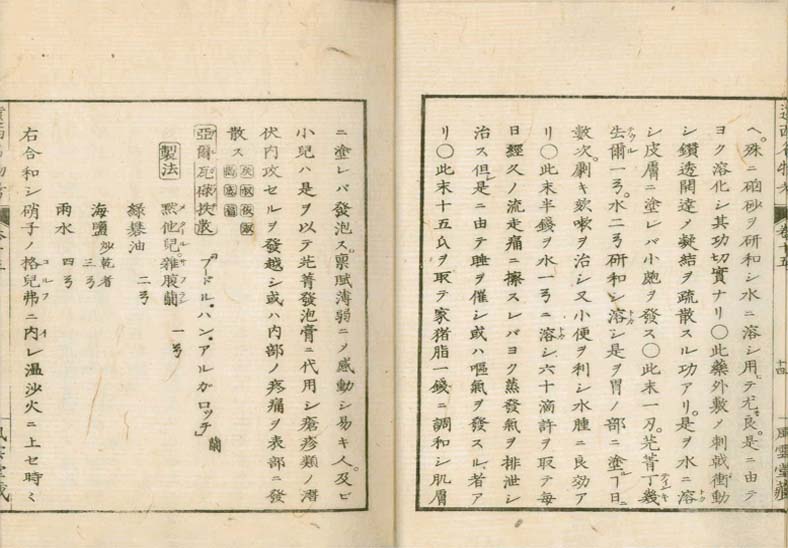 遠西名物考 卷十五 十四 風雲堂藏
ヘ。殊ニ硇砂ヲ研和シ水ニ溶シ用ヒテ尤モ良。是ニ由テ
ヨク溶化シ其功切實ナリ〇此藥外敷ノ刺戟衝動
シ鑽透開達ノ凝結ヲ疏散スル功アリ。是ヲ水ニ溶
シ皮膚ニ塗レバ小皰ヲ發ス〇此末一刃。芫菁丁幾
爾一弓。水二弓研和シ溶シ是ヲ胃ノ部ニ塗ルヿ日ニ
數次。劇キ欬嗽ヲ治シ又小便ヲ利シ水腫ニ良効ア
リ〇此末半錢ヲ水一弓ニ溶シ六十滴許ヲ取テ每
日經久ノ流走痛ニ擦スレバヨク蒸發氣ヲ排泄シ
治ス但シ是ニ由テ睡ヲ催シ或ハ嘔氣ヲ發スル者ア
リ〇此末十五ヲ取テ家猪脂一錢ニ調和シ肌膚
ニ塗レバ發泡ス。禀賦薄弱ニノ感動シ易キ人。及ビ
小兒ハ是ヲ以テ芫菁發泡膏ニ代用シ瘡疹類ノ潛
伏内攻セルヲ發越シ或ハ内部ノ疼痛ヲ表部ニ發
散ス
亞爾瓦祿扶散 「プードル・ハン・アルガロッチ」蘭
製法 黙他兒雜腹蘭 一弓
緑礬油 二弓
海鹽 炒乾者 三弓
雨水 四弓
右合和シ硝子ノ格兒弗ニ内レ溫沙火ニ上セ時々